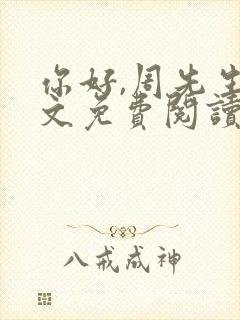 你好,周先生
文免費閱讀
八戒成神